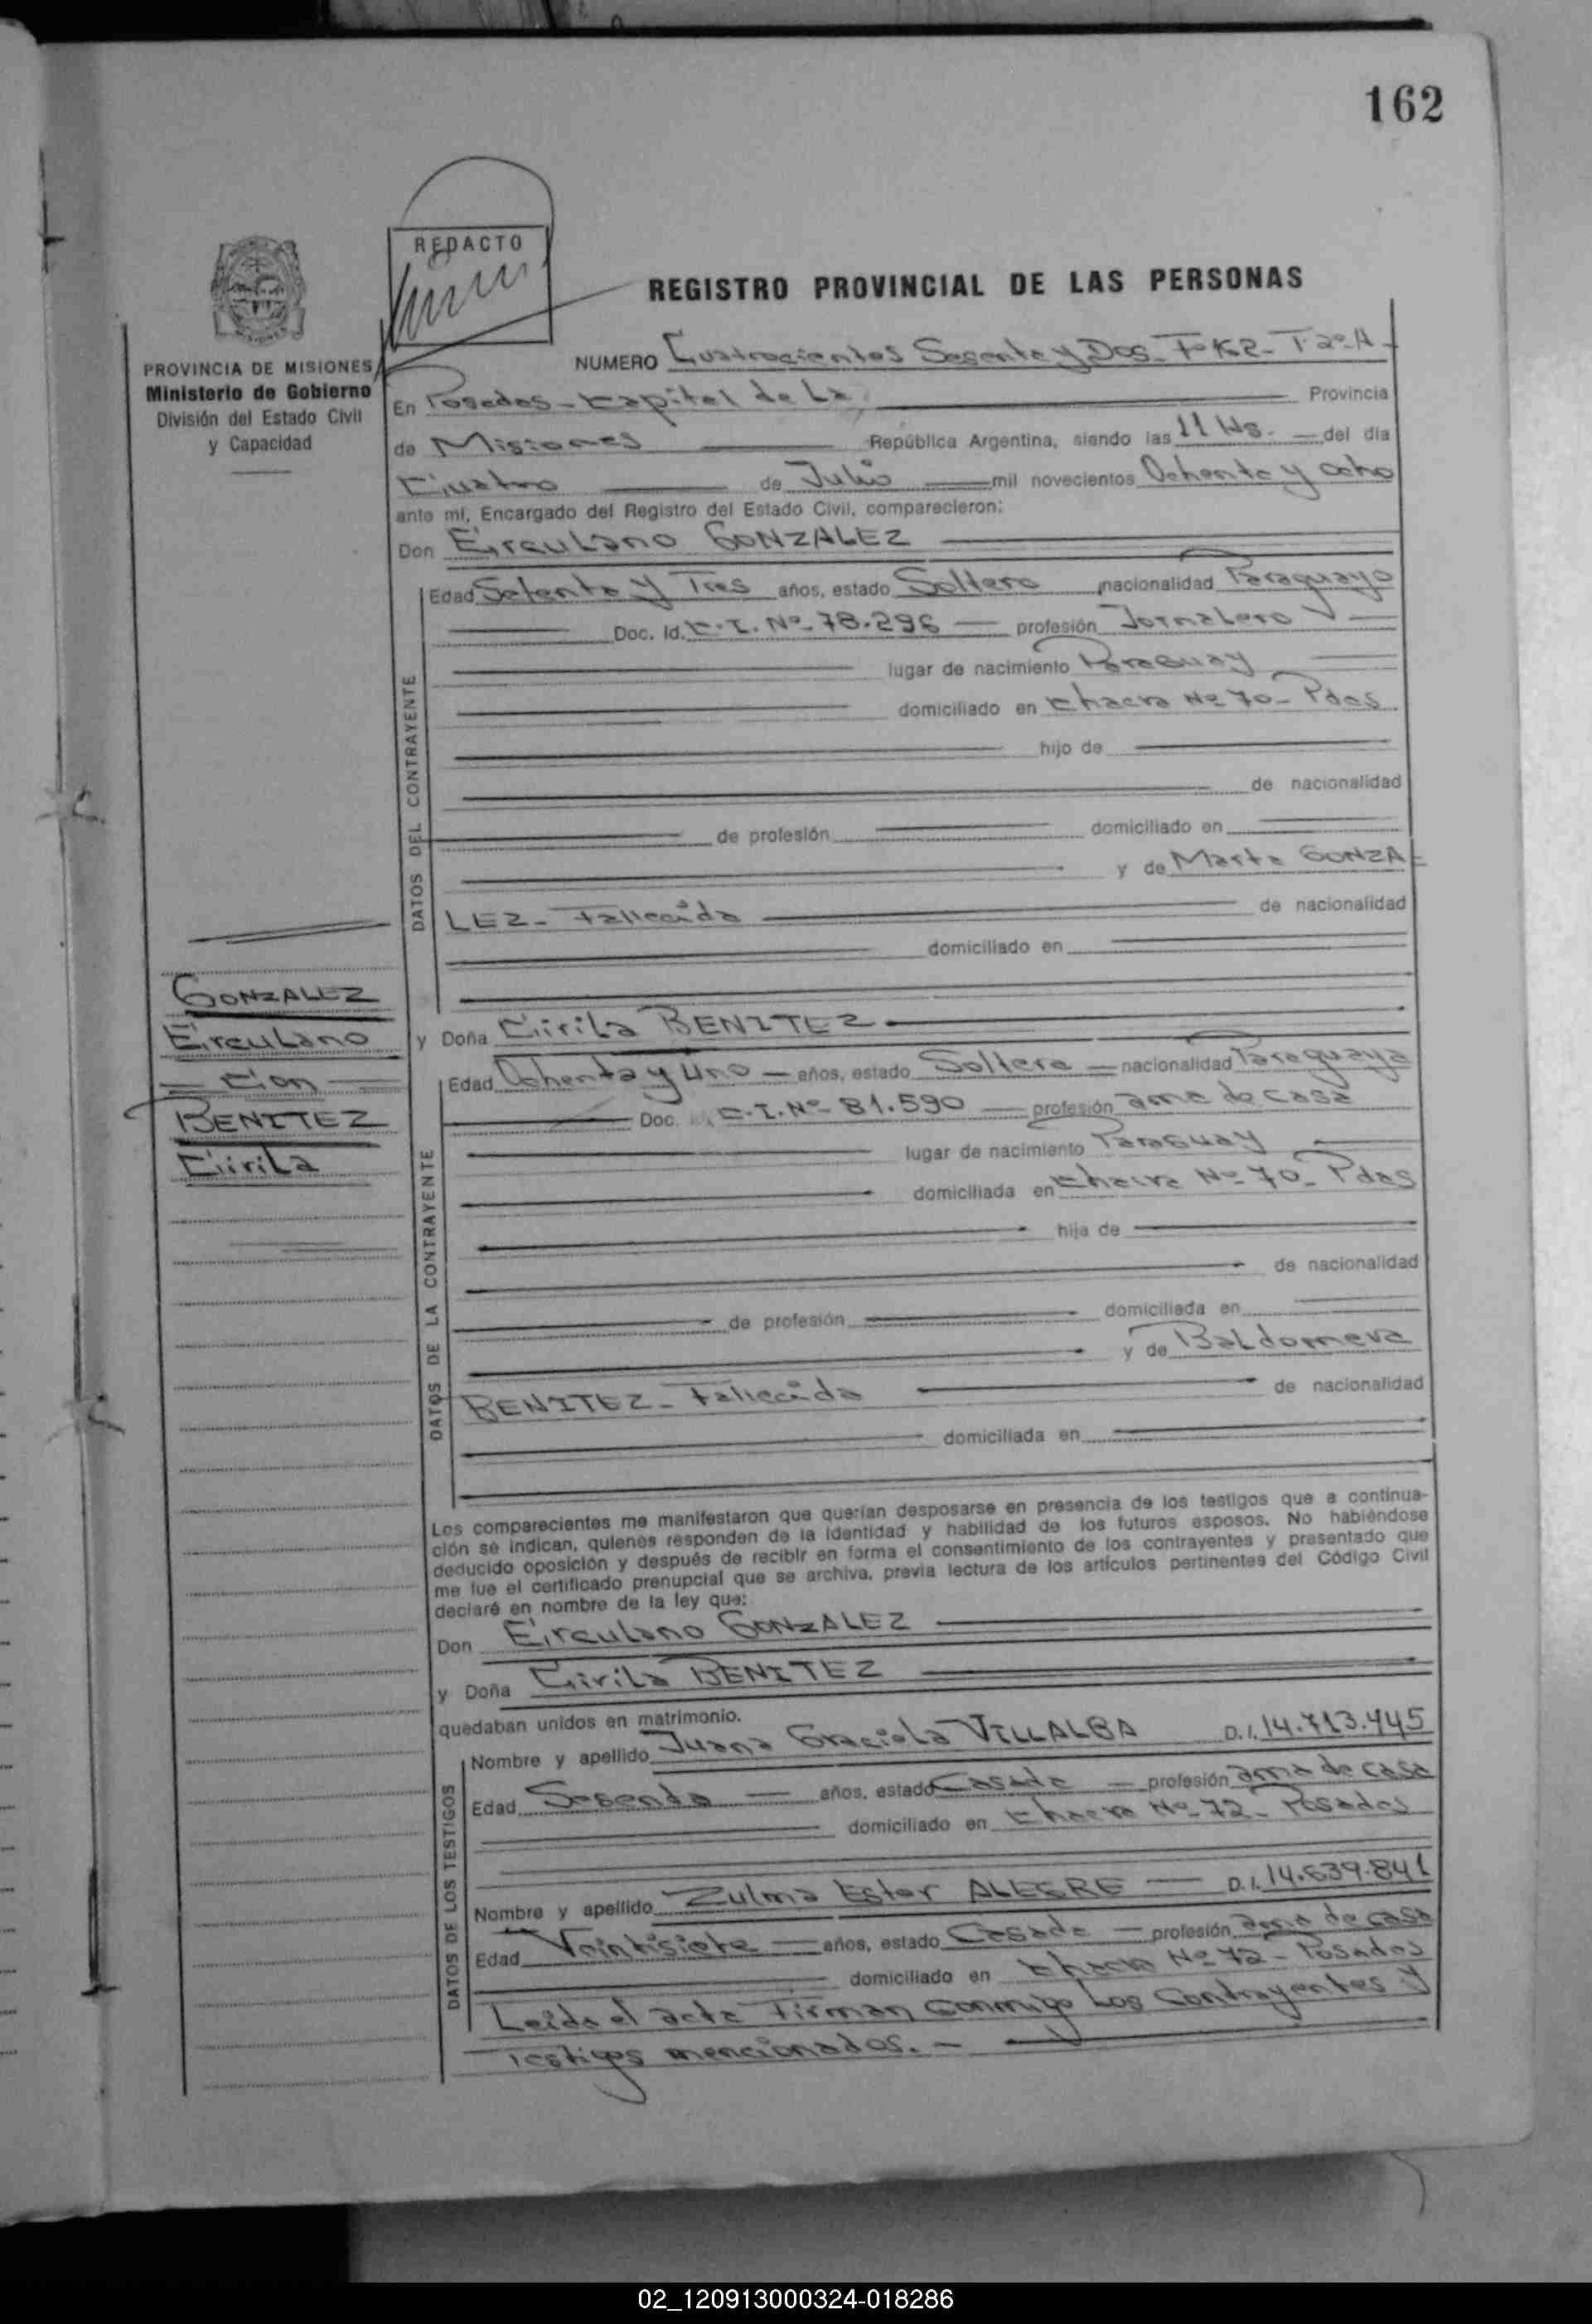 162
REDACTO
REGISTRO PROVINCIAL DE LAS PERSONAS
PROVINCIA DE MISIONES
Ministerio de Gobierno
División del Estado Civil
y Capacidad
NUMERO Cuatrocientos Sesenta y Dos - Fº 162 - T 2º A -
En Posadas - Capital de La Provincia
de Misiones República Argentina, siendo las 11 Hs. del día
Cuatro de Julio mil novecientos Ochenta y ocho
ante mí, Encargado del Registro del Estado Civil, comparecieron:
Don Eirculano GONZALEZ
Edad Setenta y Tres años, estado Soltero nacionalidad Paraguayo
Doc. Id. C.I. Nº 78.296 profesión Jornalero
lugar de nacimiento Paraguay
domiciliado en Chacra Nº 70 - Pdas
hijo de
de nacionalidad
de profesión domiciliado en
y de Marta GONZA-
LEZ - Fallecida de nacionalidad
domiciliado en
DATOS DEL CONTRAYENTE
GONZALEZ
Eirculano
Con
BENITEZ
Cirila
y Doña Cirila BENITEZ
Edad Ochenta y Uno años, estado Soltera nacionalidad Paraguaya
Doc. C.I. Nº 81.590 profesión ama de casa
lugar de nacimiento Paraguay
domiciliada en Chacra Nº 70 - Pdas
hija de
de nacionalidad
de profesión domiciliada en
y de Baldomera
BENITEZ - Fallecida de nacionalidad
domiciliada en
DATOS DE LA CONTRAYENTE
Los comparecientes me manifestaron que querían desposarse en presencia de los testigos que a continua-
ción se indican, quienes responden de la identidad y habilidad de los futuros esposos. No habiéndose
deducido oposición y después de recibir en forma el consentimiento de los contrayentes y presentado que
me fue el certificado prenupcial que se archiva, previa lectura de los artículos pertinentes del Código Civil
declaré en nombre de la ley que:
Don Eirculano GONZALEZ
y Doña Cirila BENITEZ
quedaban unidos en matrimonio.
Nombre y apellido Juana Graciela VILLALBA D.I. 14.713.445
Edad Sesenta años, estado Casada profesión ama de casa
domiciliado en Chacra Nº 72 - Posadas
Nombre y apellido Zulma Ester ALEGRE D.I. 14.639.841
Edad Veintisiete años, estado Casada profesión ama de casa
domiciliado en Chacra Nº 72 - Posadas
DATOS DE LOS TESTIGOS
Leida el acta Firman conmigo Los Contrayentes y
Testigos mencionados. -
02_120913000324-018286